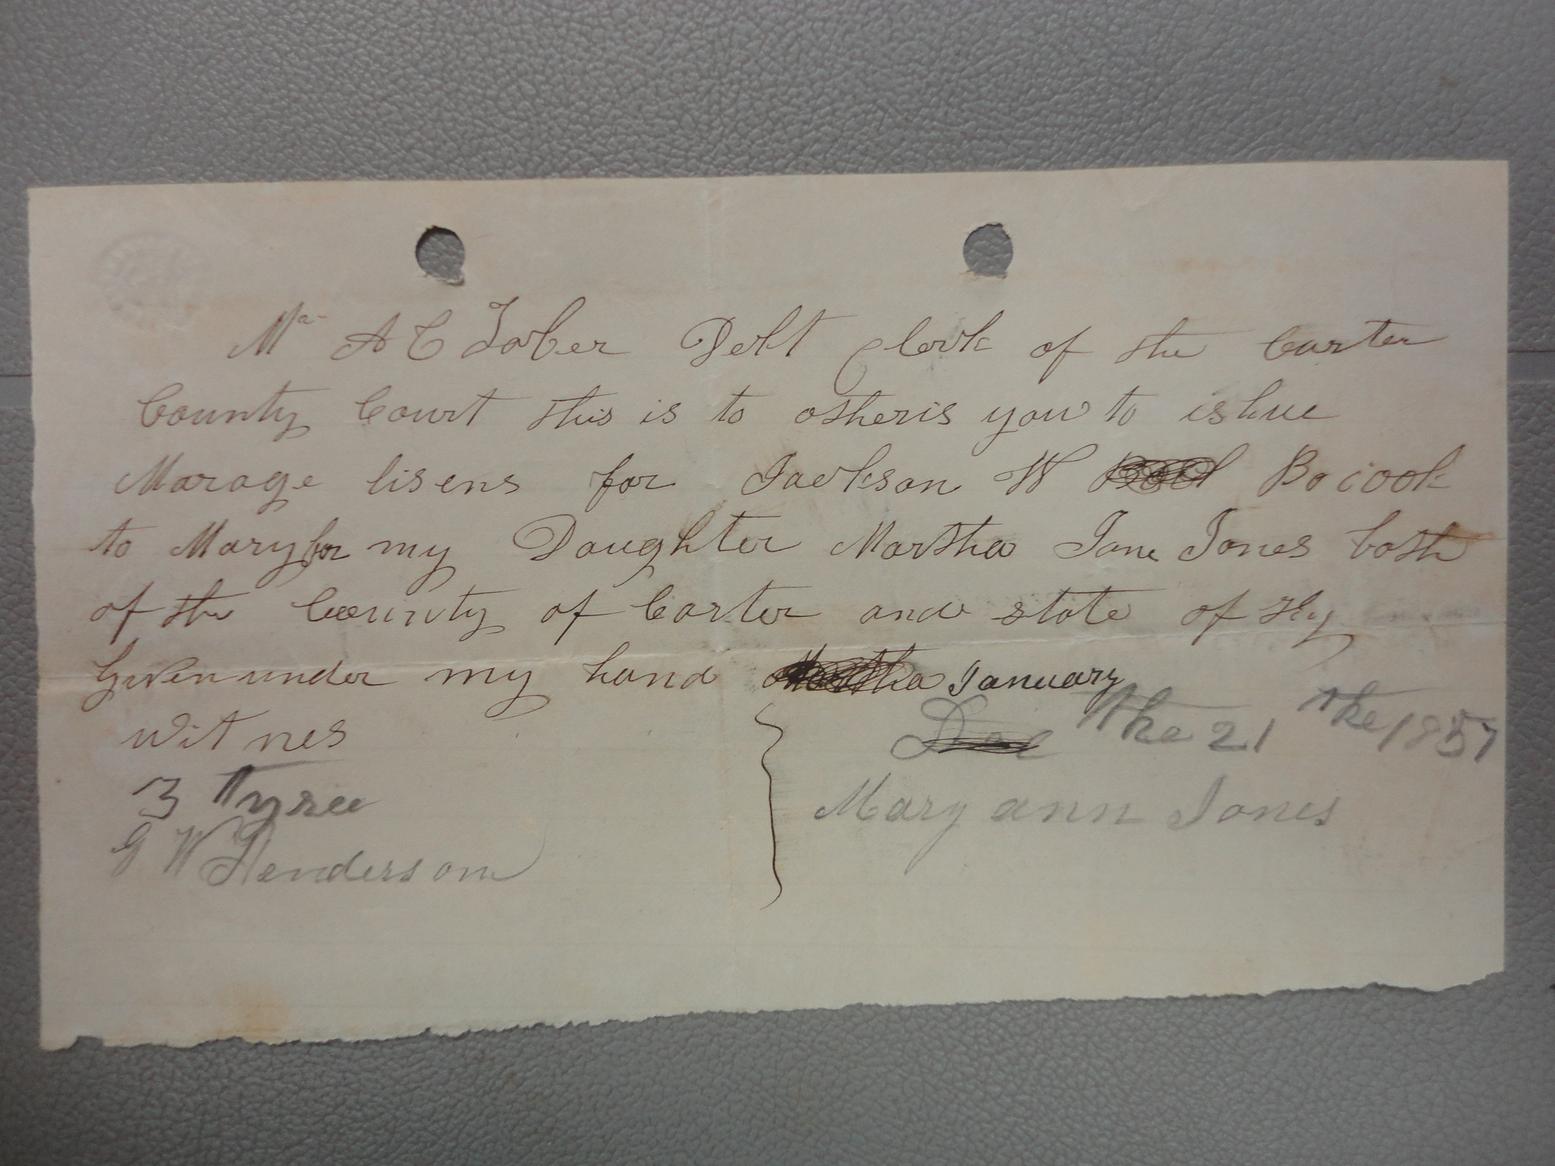 Mr A C Tober Debt Clerk of the Carter
County Court this is to otheris you to ishue
Marage lisens for Jackson W Bocook
to Mary for my Daughter Martha Jane Jones both
of the County of Carter and state of Ky
Given under my hand January
Witnes
Dec the 21 the 1857
3 Tyree
Mary ann Jones
G W Henderson